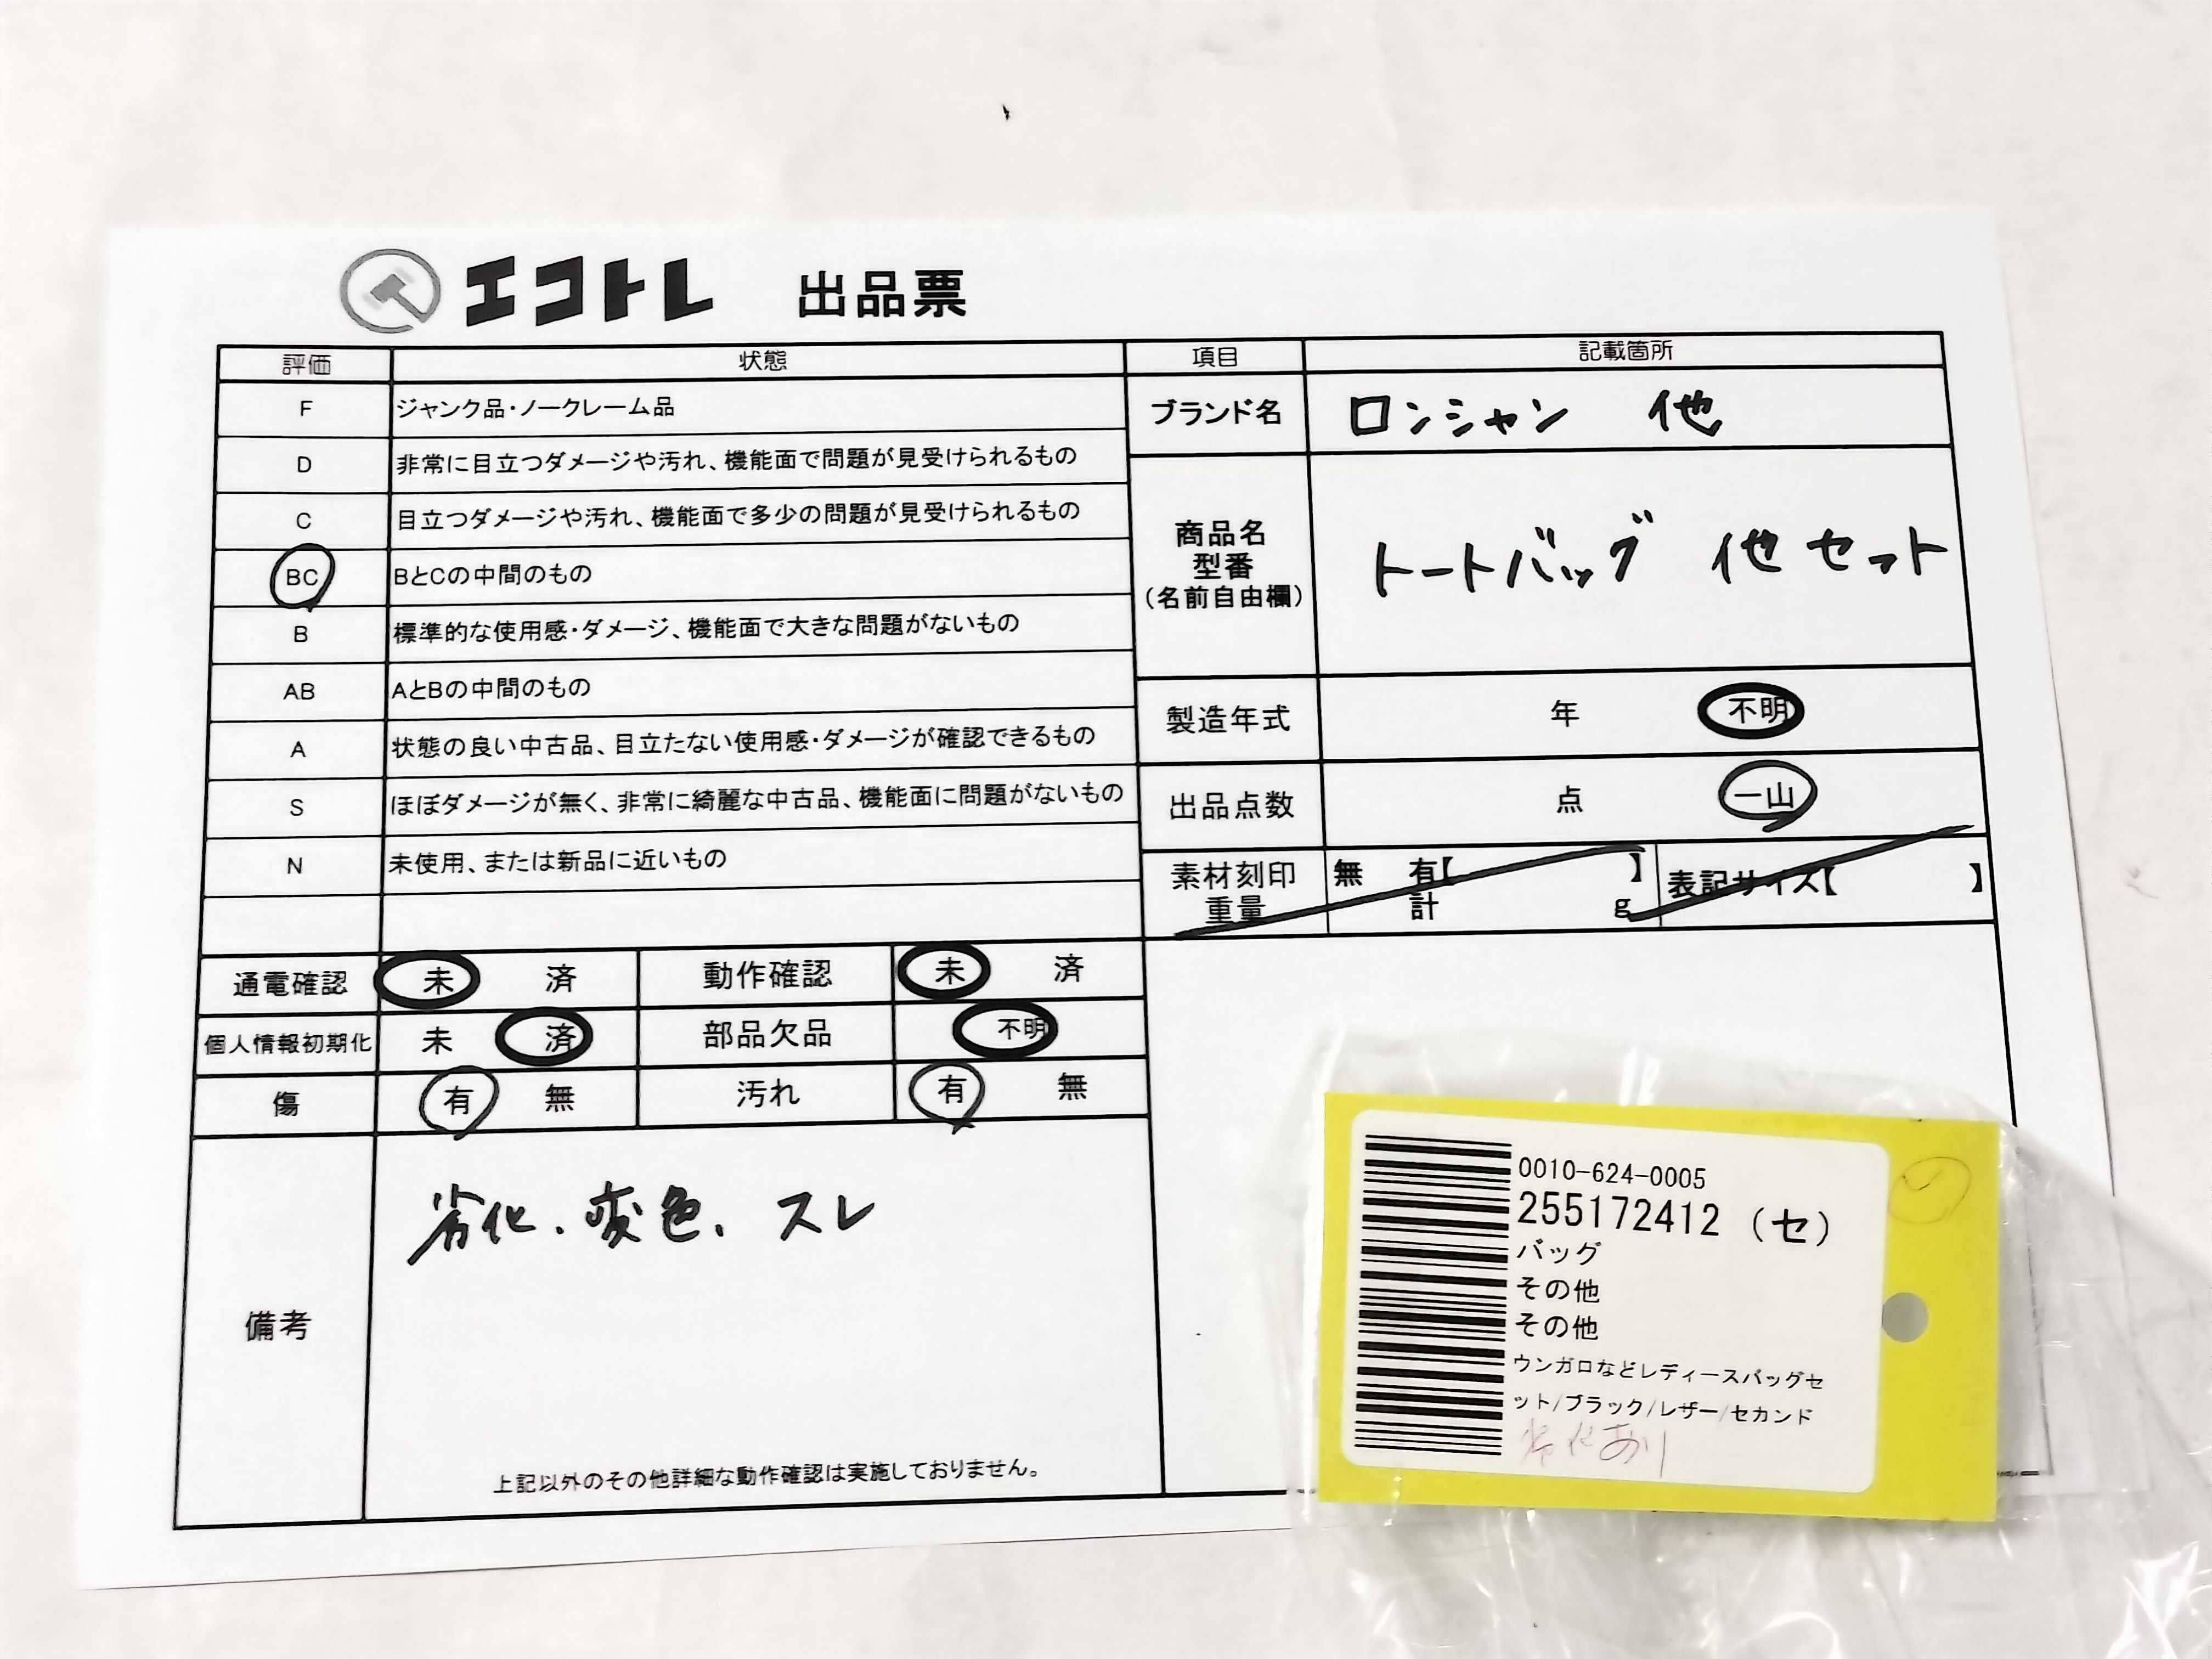 エコトレ 出品票
評価 状態 項目 記載箇所
F ジャンク品・ノークレーム品
D 非常に目立つダメージや汚れ、機能面で問題が見受けられるもの
C 目立つダメージや汚れ、機能面で多少の問題が見受けられるもの
BC BとCの中間のもの
B 標準的な使用感・ダメージ、機能面で大きな問題がないもの
AB AとBの中間のもの
A 状態の良い中古品、目立たない使用感・ダメージが確認できるもの
S ほぼダメージが無く、非常に綺麗な中古品、機能面に問題がないもの
N 未使用、または新品に近いもの
ブランド名 ロンシャン 他
商品名
型番
(名前自由欄)
トートバッグ 他 セット
製造年式 年 不明
出品点数 点 一山
素材刻印 無 有【 】 表記サイズ【 】
重量 計 g
通電確認 未 済 動作確認 未 済
個人情報初期化 未 済 部品欠品 不明
傷 有 無 汚れ 有 無
備考
劣化、変色、スレ
上記以外のその他詳細な動作確認は実施しておりません。
0010-624-0005
255172412 (セ)
バッグ
その他
その他
ウンガロなどレディースバッグセ
ット/ブラック/レザー/セカンド
劣化あり